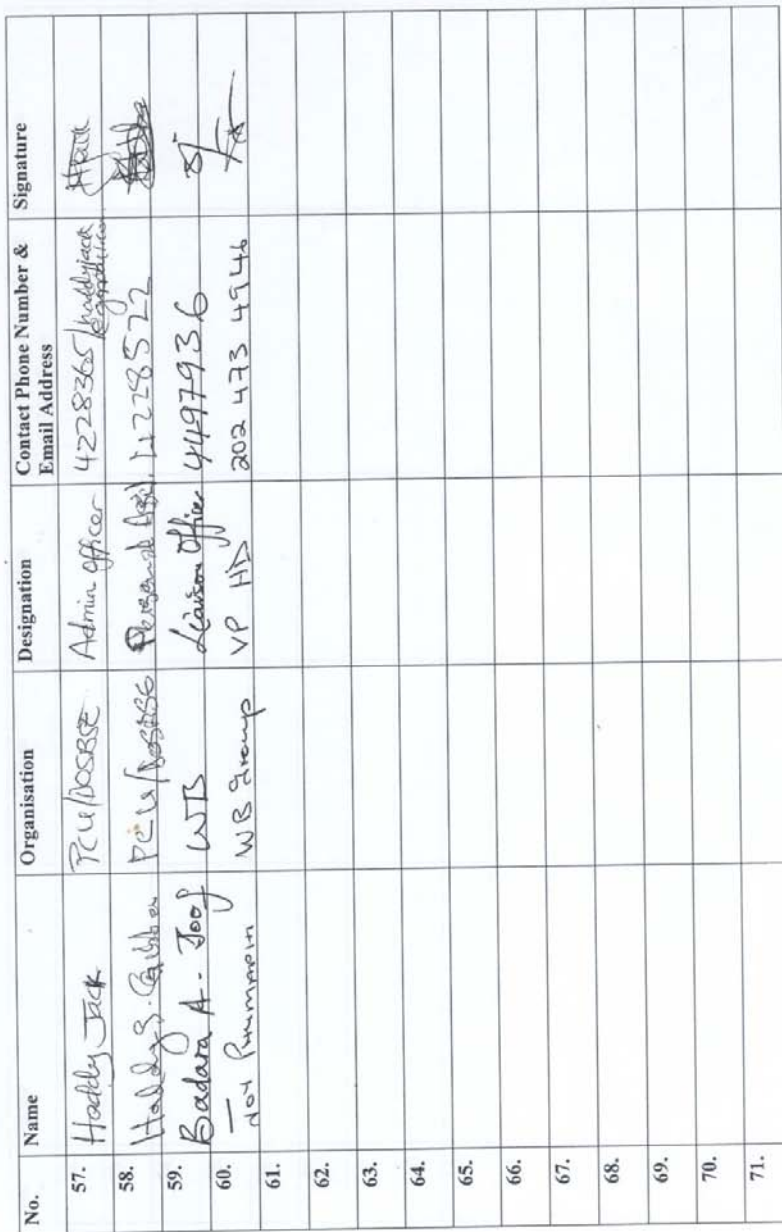 No. Name Organisation Designation Contact Phone Number & Signature
Email Address
57. Haddy Jack PCU/DOSBSE Admin Officer 4228365/haddyjack
58. Haddy S. PCU/ Personal 4228522
59. Badara A. Joof WB Liaison Officer 4497936
60. Joy Phumaphi WB Group VP HD 202 473 4946
61.
62.
63.
64.
65.
66.
67.
68.
69.
70.
71.